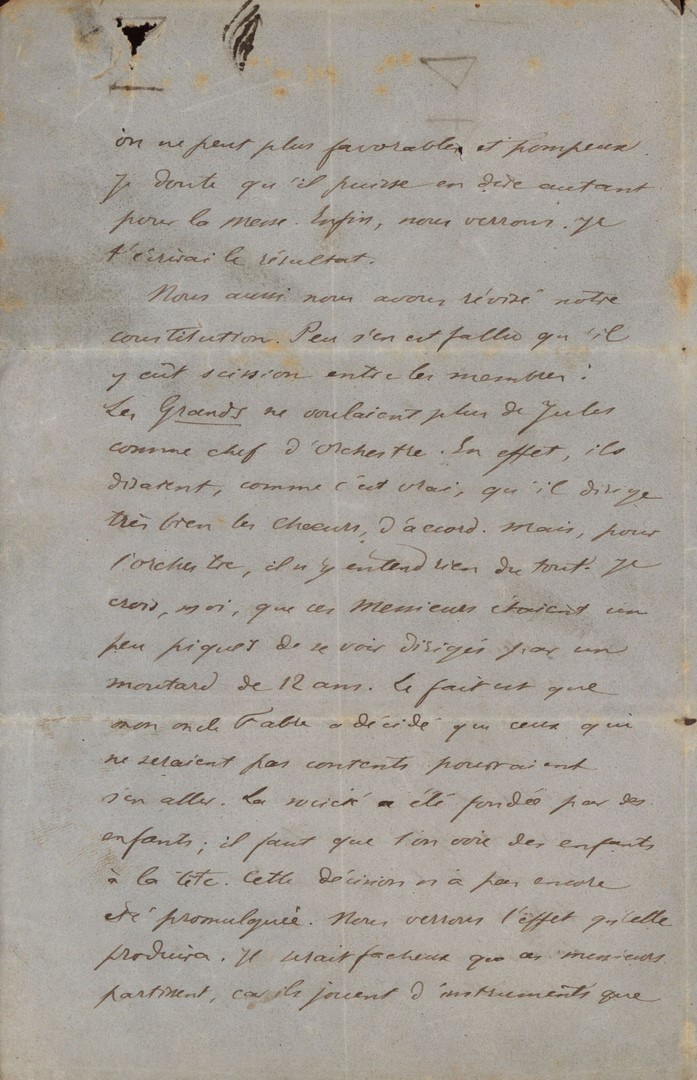 on ne peut plus favorables et pompeux.
Je doute qu'il puisse en dire autant
pour la messe. Enfin, nous verrons. Je
t'écrirai le résultat.
Nous aussi nous avons révisé notre
constitution. Peu s'en est fallu qu'il
y eût scission entre les membres :
Les Grands ne voulaient plus de Jules
comme chef d'orchestre. En effet, ils
disaient, comme c'est vrai, qu'il dirige
très bien les choeurs, d'accord. Mais, pour
l'orchestre, il n'y entend rien du tout. Je
crois, moi, que ces Messieurs étaient un
peu piqués de se voir dirigés par un
moutard de 12 ans. Le fait est que
mon oncle Fabre a décidé que ceux qui
ne seraient pas contents pourraient
s'en aller. La société a été fondée par des
enfants ; il faut que l'on voie des enfants
à la tête. Cette décision n'a pas encore
été promulguée. Nous verrons l'effet qu'elle
produira. Il serait facheux que ces messieurs
partissent, car ils jouent d'instruments que